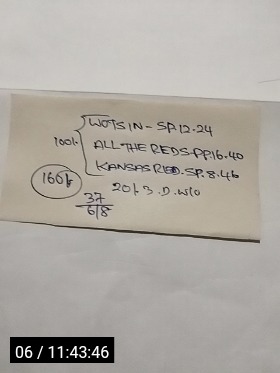 100%
WOTSIN - SP.12.24
ALL THE REDS-PP.16.40
KANSAS RED. SP. 8.46
160%
20% 3. D. W/O
37
6/8
06 / 11:43:46